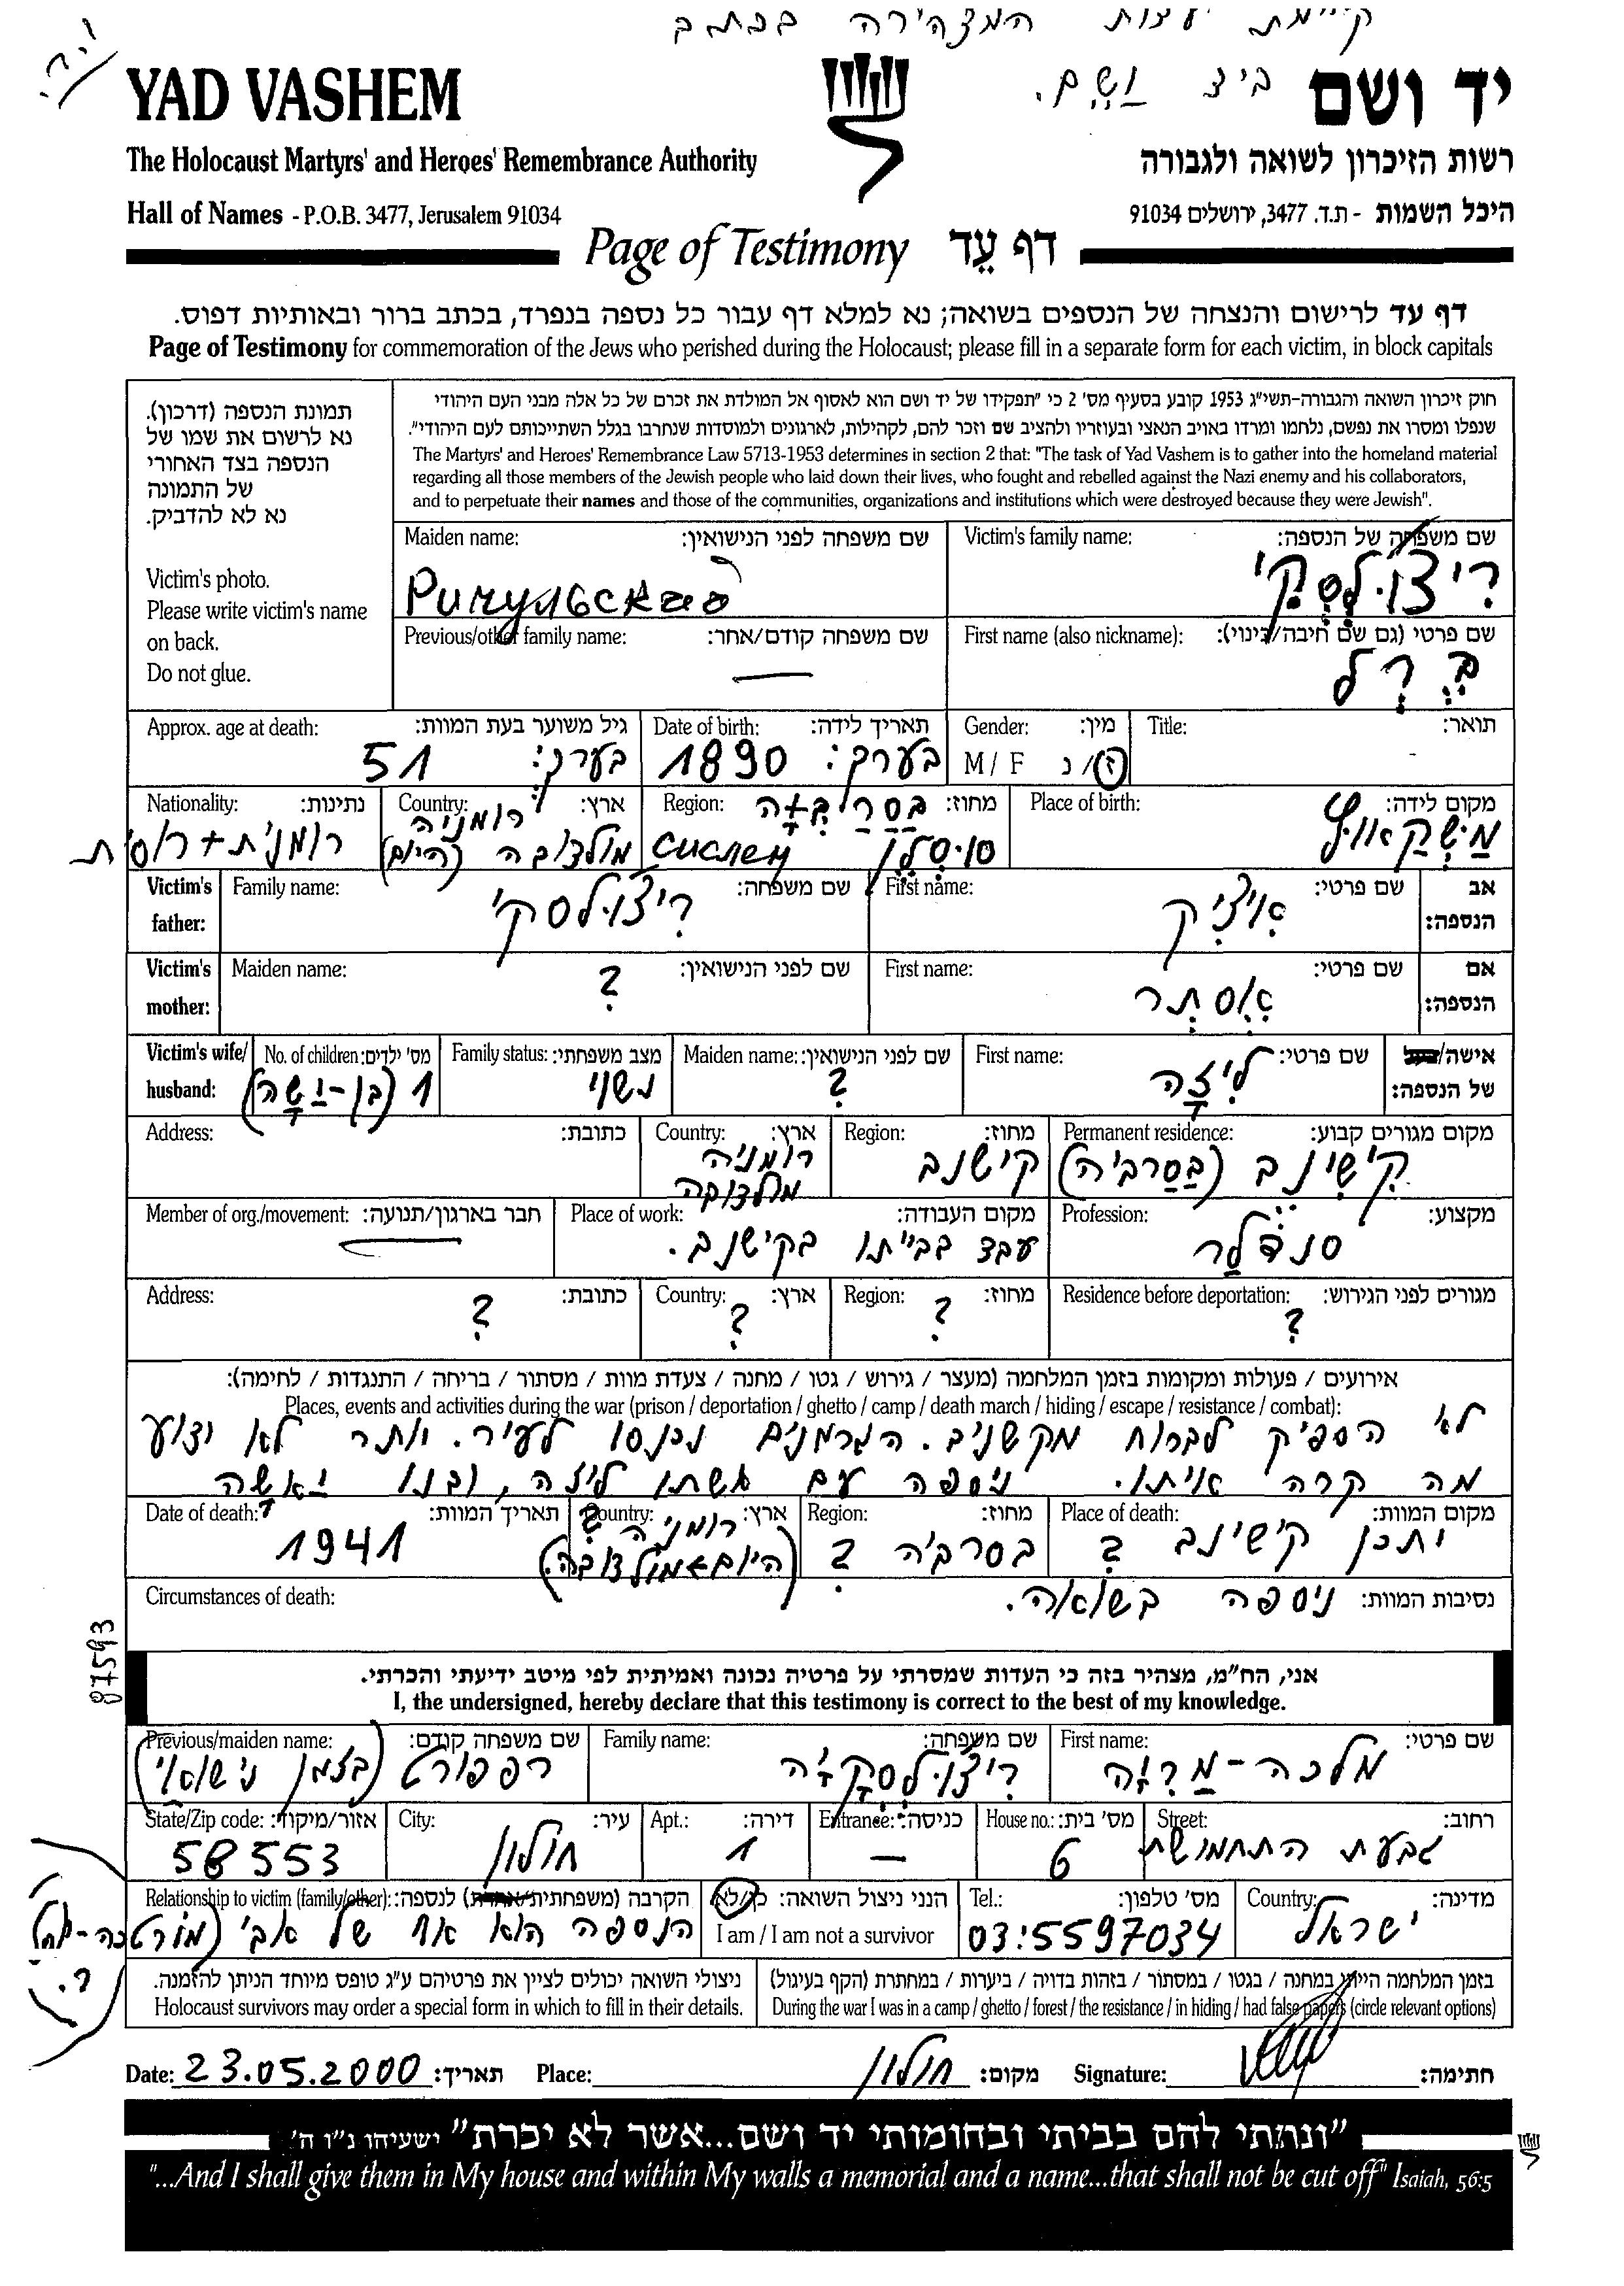 קיימת עצות המצהירה בכתב
ביד ושם.
YAD VASHEM
יד ושם
The Holocaust Martyrs' and Heroes' Remembrance Authority
רשות הזיכרון לשואה ולגבורה
Hall of Names - P.O.B. 3477, Jerusalem 91034
היכל השמות - ת.ד. 3477, ירושלים 91034
Page of Testimony דף עֵד
דף עד לרישום והנצחה של הנספים בשואה; נא למלא דף עבור כל נספה בנפרד, בכתב ברור ובאותיות דפוס.
Page of Testimony for commemoration of the Jews who perished during the Holocaust; please fill in a separate form for each victim, in block capitals
תמונת הנספה (דרכון).
נא לרשום את שמו של
הנספה בצד האחורי
של התמונה
נא לא להדביק.
Victim's photo.
Please write victim's name
on back.
Do not glue.
חוק זיכרון השואה והגבורה-תשי"ג 1953 קובע בסעיף מס' 2 כי "תפקידו של יד ושם הוא לאסוף אל המולדת את זכרם של כל אלה מבני העם היהודי
שנפלו ומסרו את נפשם, נלחמו ומרדו באויב הנאצי ובעוזריו ולהציב שם וזכר להם, לקהילות, לארגונים ולמוסדות שנחרבו בגלל השתייכותם לעם היהודי".
The Martyrs' and Heroes' Remembrance Law 5713-1953 determines in section 2 that: "The task of Yad Vashem is to gather into the homeland material
regarding all those members of the Jewish people who laid down their lives, who fought and rebelled against the Nazi enemy and his collaborators,
and to perpetuate their names and those of the communities, organizations and institutions which were destroyed because they were Jewish".
Victim's family name: שם משפחה של הנספה:
ריצ'ולסקי
Maiden name: שם משפחה לפני הנישואין:
Ричульская
First name (also nickname): שם פרטי (גם שם חיבה/כינוי):
ברל
Previous/other family name: שם משפחה קודם/אחר:
—
Title: תואר:
-
Gender: מין:
M / F ז/נ
Date of birth: תאריך לידה:
בערך: 1890
Approx. age at death: גיל משוער בעת המוות:
בערך: 51
Place of birth: מקום לידה:
Region: מחוז: בסרביה
Country: ארץ: רומניה
מולדובה (היום)
Nationality: נתינות:
Victim's father: אב הנספה:
First name: שם פרטי:
איציק
Family name: שם משפחה:
ריצ'ולסקי
Victim's mother: אם הנספה:
First name: שם פרטי:
אסתר
Maiden name: שם לפני הנישואין:
?
Victim's wife/ husband: אישה/בעל של הנספה:
First name: שם פרטי:
ליזה
Maiden name: שם לפני הנישואין:
?
Family status: מצב משפחתי:
נשוי
No. of children: מס' ילדים:
1 (בן-יאשה)
Permanent residence: מקום מגורים קבוע:
קישינב (בסרביה)
Region: מחוז:
קישנב
Country: ארץ:
רומניה
מולדובה
Address: כתובת:
Profession: מקצוע:
סנדלר
Place of work: מקום העבודה:
עבד בביתו בקישנב.
Member of org./movement: חבר בארגון/תנועה:
—
Residence before deportation: מגורים לפני הגירוש:
?
Region: מחוז:
?
Country: ארץ:
?
Address: כתובת:
?
אירועים / פעולות ומקומות בזמן המלחמה (מעצר / גירוש / גטו / מחנה / צעדת מוות / מסתור / בריחה / התנגדות / לחימה):
Places, events and activities during the war (prison / deportation / ghetto / camp / death march / hiding / escape / resistance / combat):
לא הספיק לברוח מקשניב. הגרמנים נכנסו לעיר. יותר לא ידוע
מה קרה איתו. ניספה עם אשתו ליזה, ובנו יאשה
Place of death: מקום המוות:
יתכן קישינב ?
Region: מחוז:
בסרביה ?
Country: ארץ:
רומניה ?
(היום מולדובה)
Date of death: תאריך המוות:
1941
Circumstances of death: נסיבות המוות: ניספה בשואה.
87593
אני, הח"מ, מצהיר בזה כי העדות שמסרתי על פרטיה נכונה ואמיתית לפי מיטב ידיעתי והכרתי.
I, the undersigned, hereby declare that this testimony is correct to the best of my knowledge.
First name: שם פרטי:
מלכה-מריה
Family name: שם משפחה:
ריצ'ולסקיה
Previous/maiden name: שם משפחה קודם:
רפפורט (בזמן נישואי)
Street: רחוב:
גבעת התחמושת
House no.: מס' בית:
6
Entrance: כניסה:
—
Apt.: דירה:
1
City: עיר:
חולון
State/Zip code: אזור/מיקוד:
58553
Country: מדינה:
ישראל
Tel.: מס' טלפון:
03:5597034
הנני ניצול השואה: כן/לא
I am / I am not a survivor
Relationship to victim (family/other): הקרבה (משפחתית/אחרת) לנספה:
הנספה הוא אח של אבי
בזמן המלחמה הייתי במחנה / בגטו / במסתור / בזהות בדויה / ביערות / במחתרת (הקף בעיגול)
During the war I was in a camp / ghetto / forest / the resistance / in hiding / had false papers (circle relevant options)
ניצולי השואה יכולים לציין את פרטיהם ע"ג טופס מיוחד הניתן להזמנה.
Holocaust survivors may order a special form in which to fill in their details.
Date: 23.05.2000 תאריך: Place: חולון מקום: Signature: חתימה:
"ונתתי להם בביתי ובחומותי יד ושם...אשר לא יכרת" ישעיהו נ"ו ה'
"...And I shall give them in My house and within My walls a memorial and a name...that shall not be cut off" Isaiah, 56:5